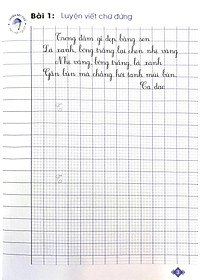 Bài 1: Luyện viết chữ đứng
Trong đầm gì đẹp bằng sen
Lá xanh, bông trắng lại chen nhị vàng
Nhị vàng, bông trắng, lá xanh
Gần bùn mà chẳng hôi tanh mùi bùn.
Ca dao
3